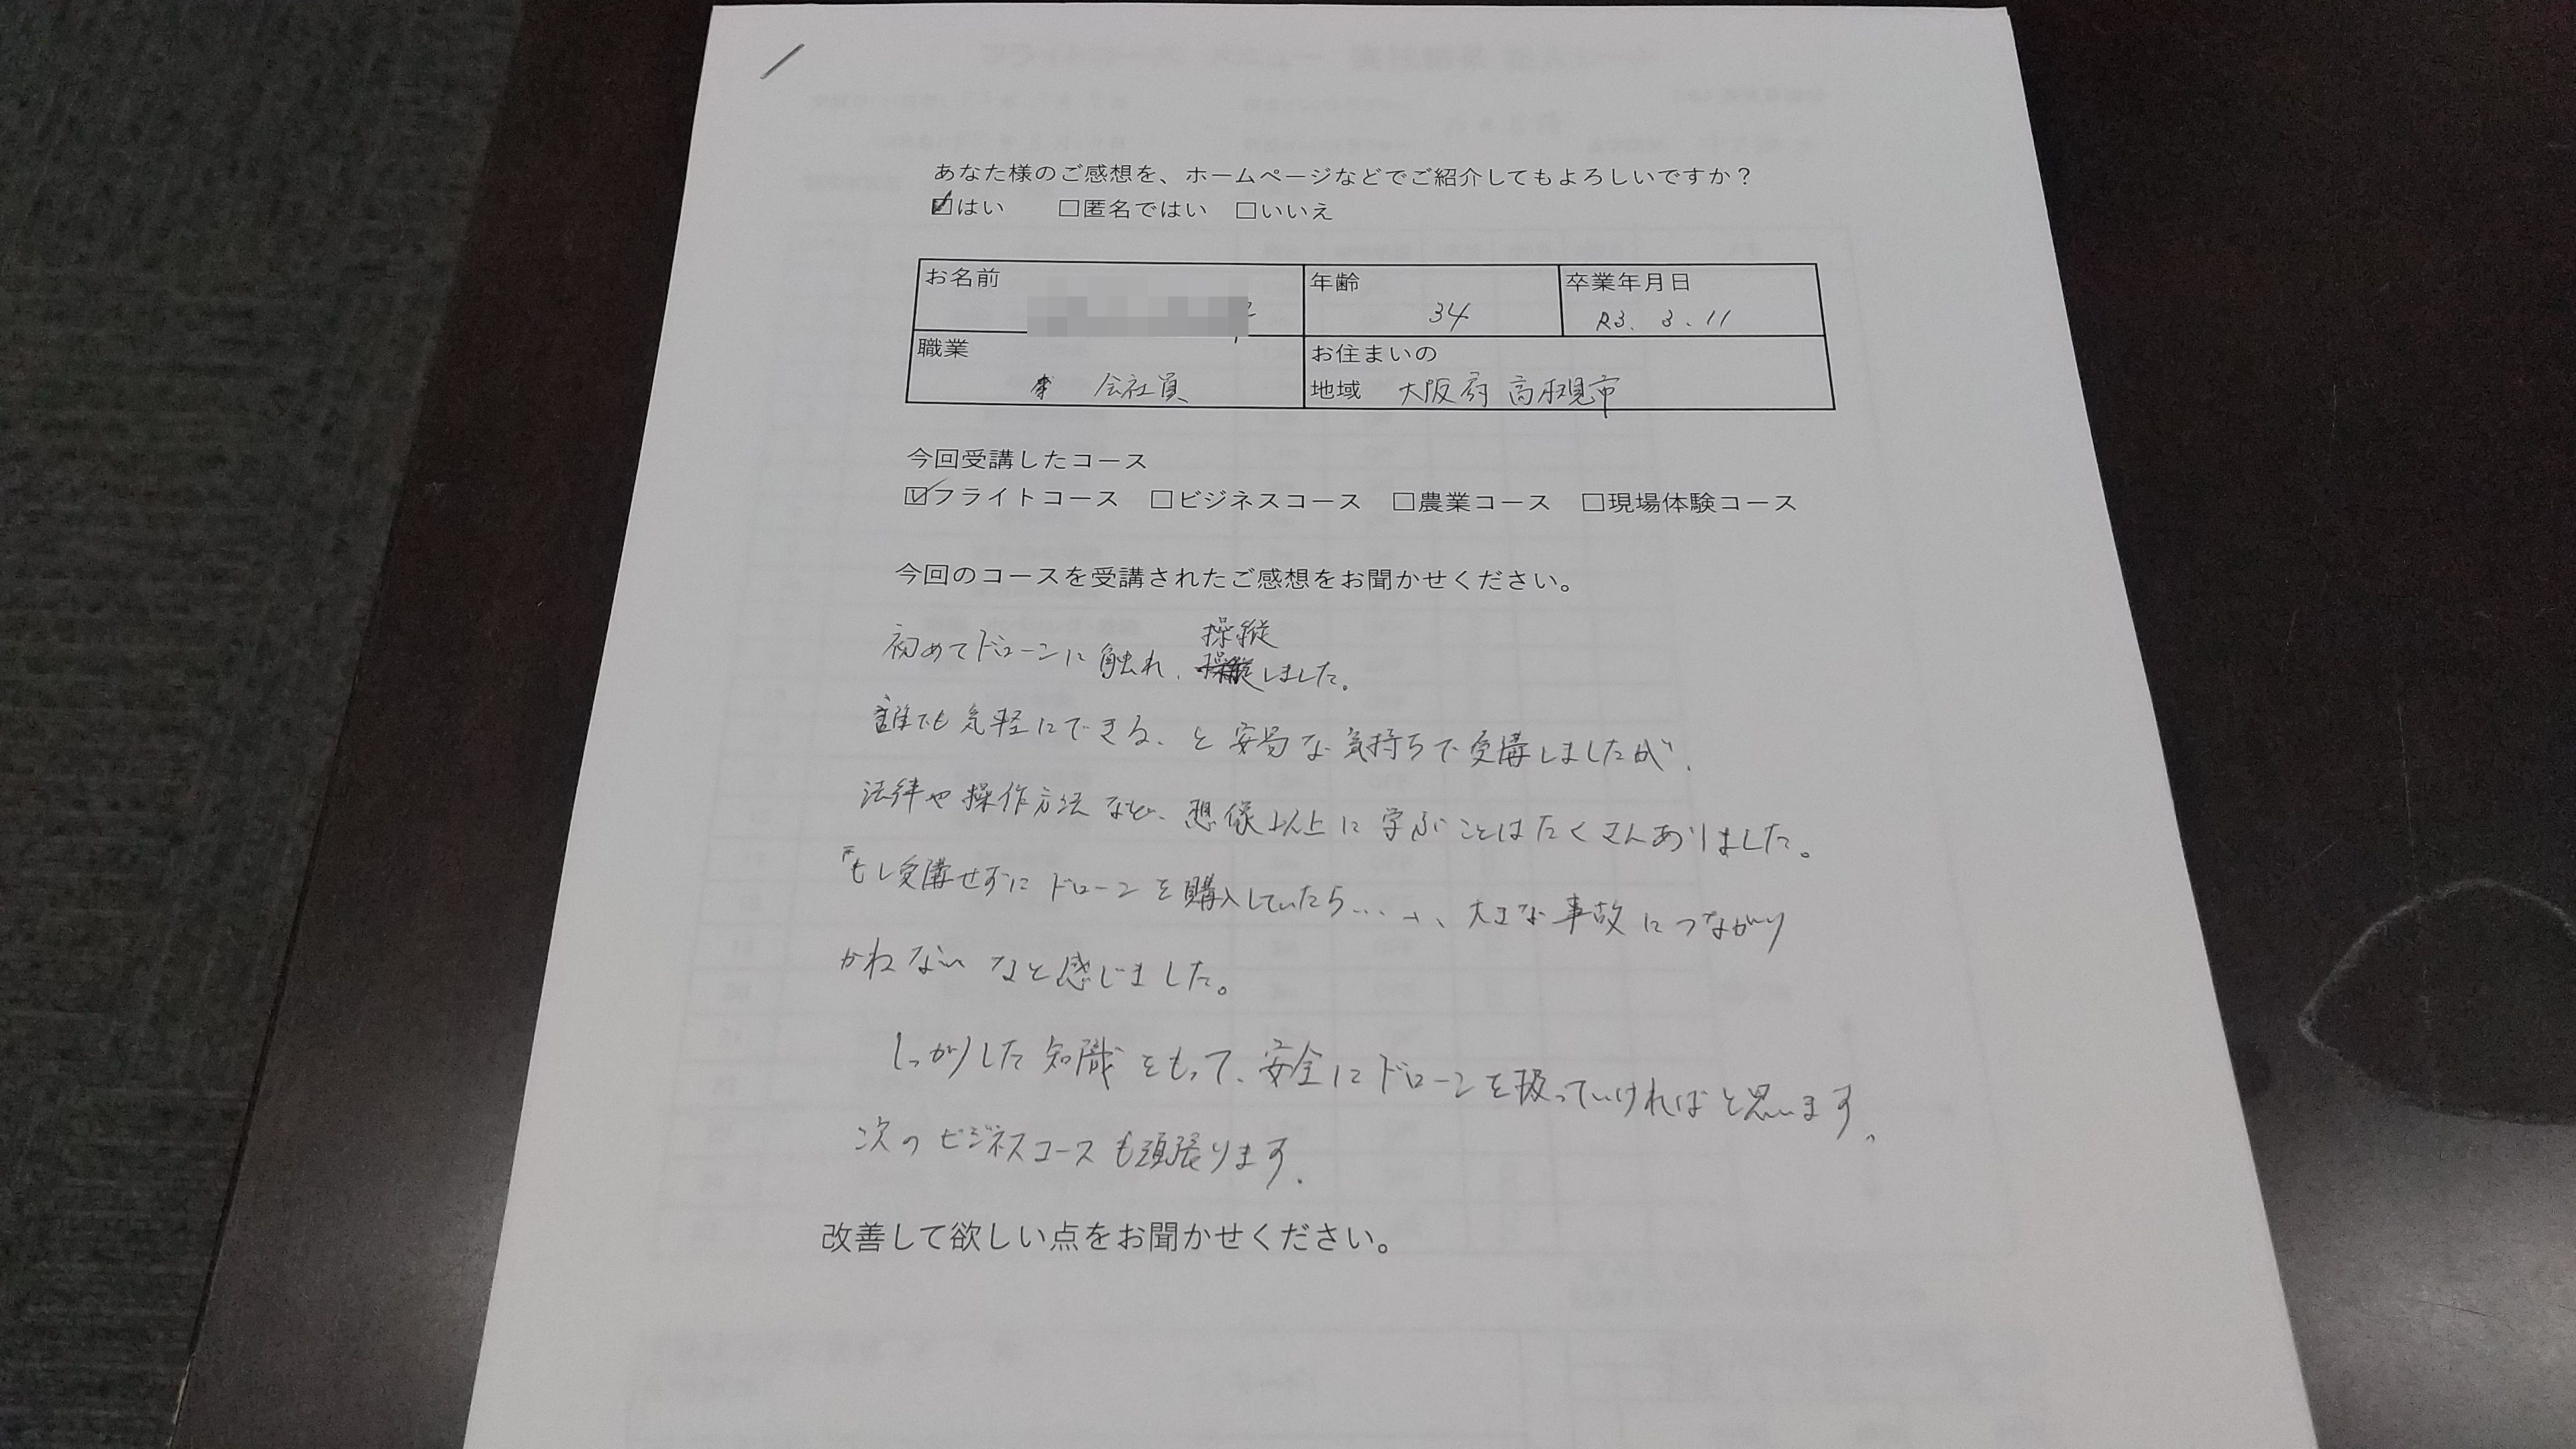 あなた様のご感想を、ホームページなどでご紹介してもよろしいですか？
☑はい　□匿名ではい　□いいえ
お名前　年齢　34　卒業年月日　R3. 3. 11
職業　会社員　お住まいの地域　大阪府 高槻市
今回受講したコース
☑フライトコース　□ビジネスコース　□農業コース　□現場体験コース
今回のコースを受講されたご感想をお聞かせください。
初めてドローンに触れ、操縦しました。
誰でも気軽にできる、と安易な気持ちで受講しましたが、
法律や操作方法など、想像以上に学ぶことはたくさんありました。
もし受講せずにドローンを購入していたら…、大きな事故につながり
かねないなと感じました。
しっかりした知識をもって、安全にドローンを扱っていければと思います。
次のビジネスコースも頑張ります。
改善して欲しい点をお聞かせください。